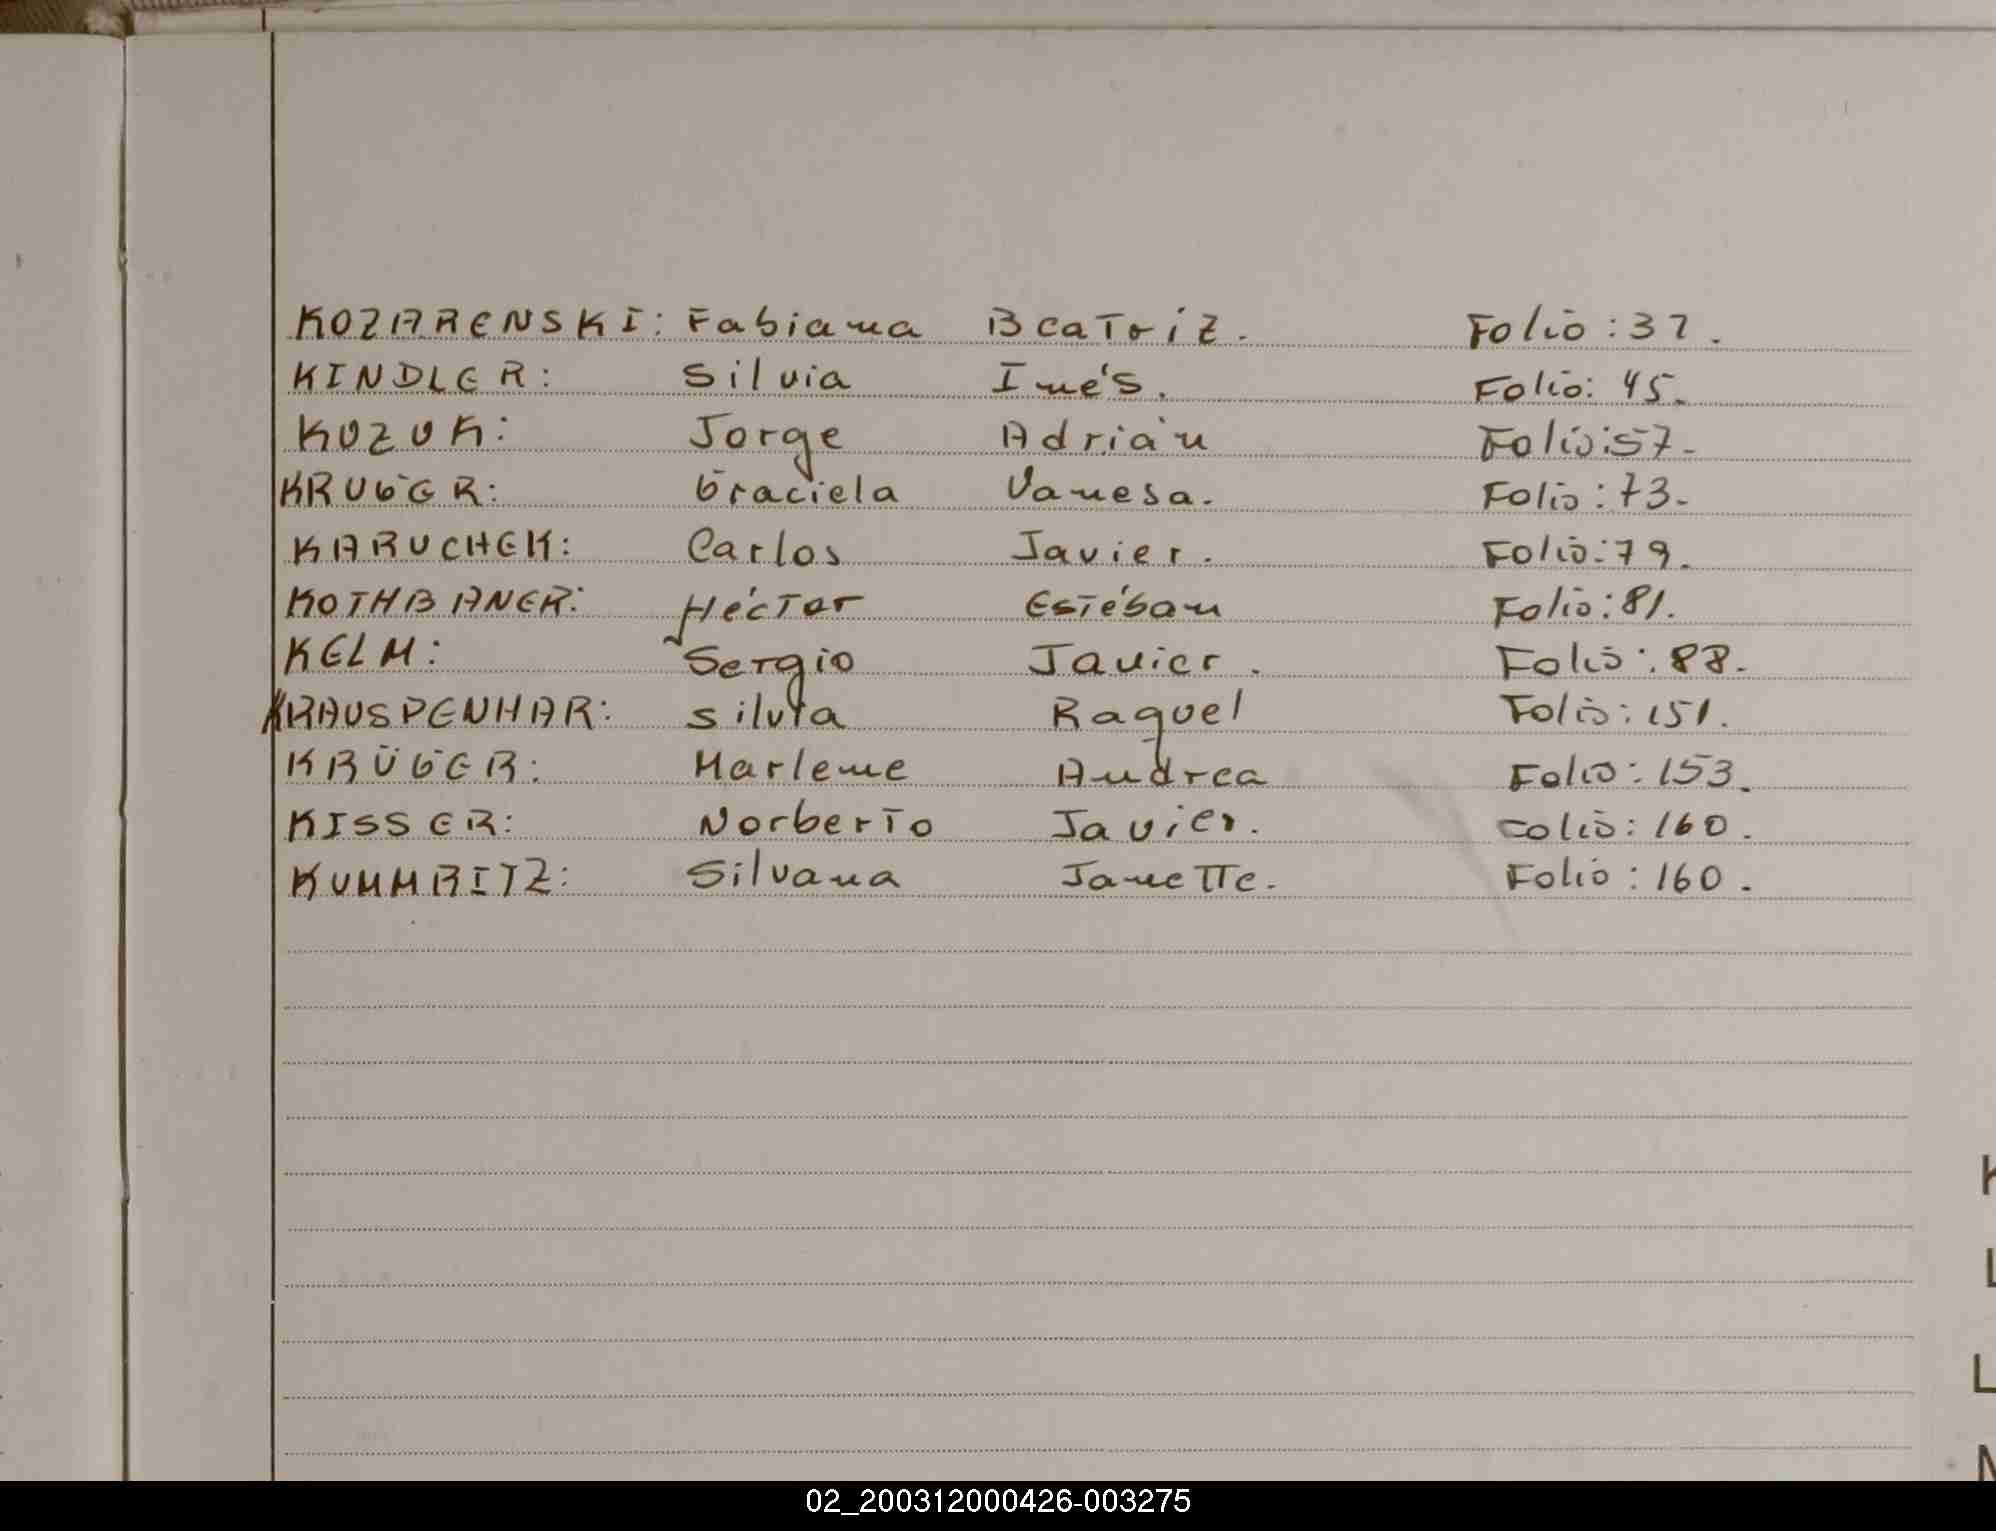 KOZARENSKI: Fabiana Beatriz. Folio: 37.
KINDLER: Silvia Inés. Folio: 45.
KOZUK: Jorge Adrián Folio: 57.
KRUGER: Graciela Vanesa. Folio: 73.
KARUCHEK: Carlos Javier. Folio: 79.
KOTHBANER: Héctor Estéban Folio: 81.
KELM: Sergio Javier. Folio: 88.
KRAUSPENHAR: Silvia Raquel Folio: 151.
KRÜGER: Marlene Andrea Folio: 153.
KISSER: Norberto Javier. Folio: 160.
KUMMRITZ: Silvana Janette. Folio: 160.
K
L
L
02_200312000426-003275